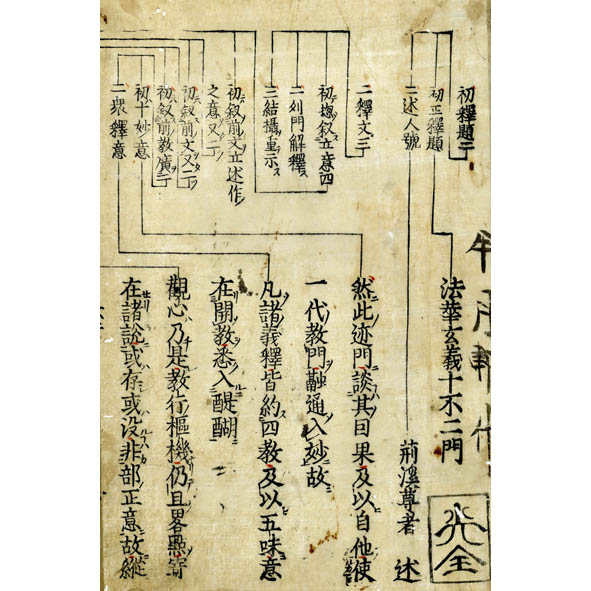 初釋題二
初正釋題
二述人號
二釋文三
初總叙立意四
二列門解釋
三結攝重示
初叙前文立述作
之意又二
初叙前文又二
初叙前教廣二
初十妙意
二衆釋意
法華玄義十不二門
荊溪尊者 述
然此迹門談其因果及以自他使
一代教門融通入妙故
凡諸義釋皆約四教及以五味意
在開教悉入醍醐
觀心乃是教行樞機仍且畧點寄
在諸說或存或没非部正意故縱